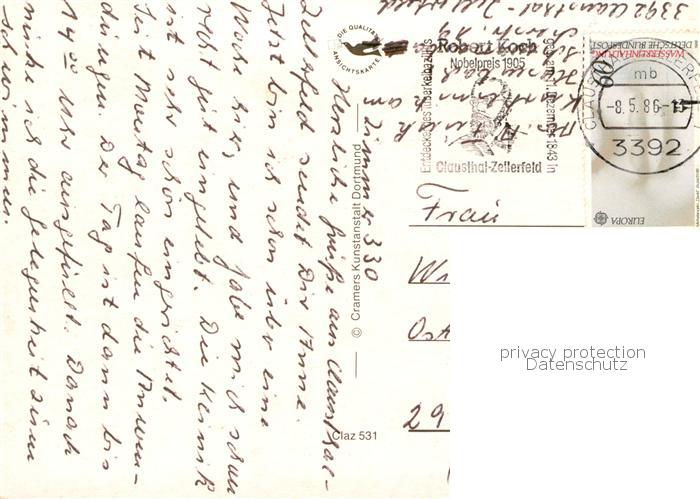 3392 Clausthal-Zellerfeld
am
Zimmer 330
Herzliche Grüße aus Clausthal-
Zellerfeld sendet Dir Anne.
Jetzt bin ich schon über eine
Woche hier, und habe mich schon
sehr gut eingelebt. Die Klinik
ist sehr schön eingerichtet.
Seit Montag laufen die Anwen-
dungen. Der Tag ist dann bis
14 00 Uhr ausgefüllt. Danach
nütze ich die Gelegenheit zum
schwimmen.
DIE QUALITÄTS
ANSICHTSKARTE
© Cramers Kunstanstalt Dortmund
Claz 531
Robert Koch
Nobelpreis 1905
Entdecker des Tuberkelbazillus
geb. am 11. Dezember 1843 in
Clausthal-Zellerfeld
mb
-8.5.86-
3392
60
WASSERREINHALTUNG
DEUTSCHE BUNDESPOST
EUROPA
Frau
Wi
Ost
29
privacy protection
Datenschutz